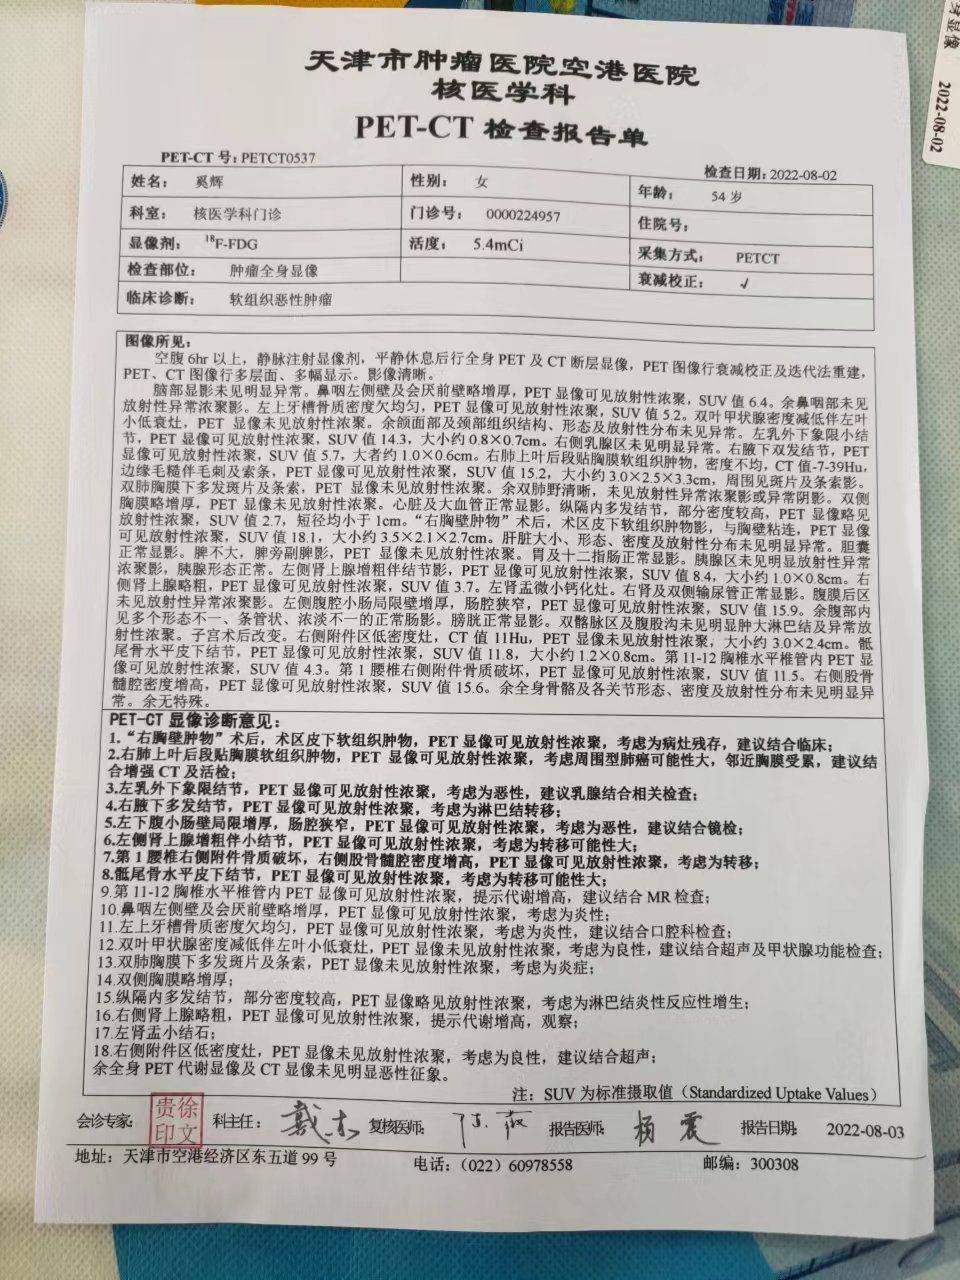 天津市肿瘤医院空港医院
核医学科
PET-CT 检查报告单
PET-CT 号：PETCT0537 检查日期：2022-08-02
姓名： 奚辉 性别： 女 年龄： 54 岁
科室： 核医学科门诊 门诊号： 0000224957 住院号：
显像剂： 18F-FDG 活度： 5.4mCi 采集方式： PETCT
检查部位： 肿瘤全身显像 衰减校正： √
临床诊断： 软组织恶性肿瘤
图像所见：
空腹 6hr 以上，静脉注射显像剂，平静休息后行全身 PET 及 CT 断层显像，PET 图像行衰减校正及迭代法重建，
PET、CT 图像行多层面、多幅显示。影像清晰。
脑部显影未见明显异常。鼻咽左侧壁及会厌前壁略增厚，PET 显像可见放射性浓聚，SUV 值 6.4。余鼻咽部未见
放射性异常浓聚影。左上牙槽骨质密度欠均匀，PET 显像可见放射性浓聚，SUV 值 5.2。双叶甲状腺密度减低伴左叶
小低衰灶，PET 显像未见放射性浓聚。余颌面部及颈部组织结构、形态及放射性分布未见异常。左乳外下象限小结
节，PET 显像可见放射性浓聚，SUV 值 14.3，大小约 0.8×0.7cm。右侧乳腺区未见明显异常。右腋下双发结节，PET
显像可见放射性浓聚，SUV 值 5.7，大者约 1.0×0.6cm。右肺上叶后段贴胸膜软组织肿物，密度不均，CT 值-7-39Hu，
边缘毛糙伴毛刺及索条，PET 显像可见放射性浓聚，SUV 值 15.2，大小约 3.0×2.5×3.3cm，周围见斑片及条索影。
双肺胸膜下多发斑片及条索，PET 显像未见放射性浓聚。余双肺野清晰，未见放射性异常浓聚影或异常阴影。双侧
胸膜略增厚，PET 显像未见放射性浓聚。心脏及大血管正常显影。纵隔内多发结节，部分密度较高，PET 显像略见
放射性浓聚，SUV 值 2.7，短径均小于 1cm。“右胸壁肿物”术后，术区皮下软组织肿物影，与胸壁粘连，PET 显像
可见放射性浓聚，SUV 值 18.1，大小约 3.5×2.1×2.7cm。肝脏大小、形态、密度及放射性分布未见明显异常。胆囊
正常显影。脾不大，脾旁副脾影，PET 显像未见放射性浓聚。胃及十二指肠正常显影。胰腺区未见明显放射性异常
浓聚影，胰腺形态正常。左侧肾上腺增粗伴结节影，PET 显像可见放射性浓聚，SUV 值 8.4，大小约 1.0×0.8cm。右
侧肾上腺略粗，PET 显像可见放射性浓聚，SUV 值 3.7。左肾盂微小钙化灶。右肾及双侧输尿管正常显影。腹膜后区
未见放射性异常浓聚影。左侧腹腔小肠局限壁增厚，肠腔狭窄，PET 显像可见放射性浓聚，SUV 值 15.9。余腹部内
见多个形态不一、条管状、浓淡不一的正常肠影。膀胱正常显影。双髂脉区及腹股沟未见明显肿大淋巴结及异常放
射性浓聚。子宫术后改变。右侧附件区低密度灶，CT 值 11Hu，PET 显像未见放射性浓聚，大小约 3.0×2.4cm。骶
尾骨水平皮下结节，PET 显像可见放射性浓聚，SUV 值 11.8，大小约 1.2×0.8cm。第 11-12 胸椎水平椎管内 PET 显
像可见放射性浓聚，SUV 值 4.3。第 1 腰椎右侧附件骨质破坏，PET 显像可见放射性浓聚，SUV 值 11.5。右侧股骨
髓腔密度增高，PET 显像可见放射性浓聚，SUV 值 15.6。余全身骨骼及各关节形态、密度及放射性分布未见明显异
常。余无特殊。
PET-CT 显像诊断意见：
1.“右胸壁肿物”术后，术区皮下软组织肿物，PET 显像可见放射性浓聚，考虑为病灶残存，建议结合临床；
2.右肺上叶后段贴胸膜软组织肿物，PET 显像可见放射性浓聚，考虑周围型肺癌可能性大，邻近胸膜受累，建议结
合增强 CT 及活检；
3.左乳外下象限结节，PET 显像可见放射性浓聚，考虑为恶性，建议乳腺结合相关检查；
4.右腋下多发结节，PET 显像可见放射性浓聚，考虑为淋巴结转移；
5.左下腹小肠壁局限增厚，肠腔狭窄，PET 显像可见放射性浓聚，考虑为恶性，建议结合镜检；
6.左侧肾上腺增粗伴小结节，PET 显像可见放射性浓聚，考虑为转移可能性大；
7.第 1 腰椎右侧附件骨质破坏，右侧股骨髓腔密度增高，PET 显像可见放射性浓聚，考虑为转移；
8.骶尾骨水平皮下结节，PET 显像可见放射性浓聚，考虑为转移可能性大；
9.第 11-12 胸椎水平椎管内 PET 显像可见放射性浓聚，提示代谢增高，建议结合 MR 检查；
10.鼻咽左侧壁及会厌前壁略增厚，PET 显像可见放射性浓聚，考虑为炎性；
11.左上牙槽骨质密度欠均匀，PET 显像可见放射性浓聚，考虑为炎性，建议结合口腔科检查；
12.双叶甲状腺密度减低伴左叶小低衰灶，PET 显像未见放射性浓聚，考虑为良性，建议结合超声及甲状腺功能检查；
13.双肺胸膜下多发斑片及条索，PET 显像未见放射性浓聚，考虑为炎症；
14.双侧胸膜略增厚；
15.纵隔内多发结节，部分密度较高，PET 显像略见放射性浓聚，考虑为淋巴结炎性反应性增生；
16.右侧肾上腺略粗，PET 显像可见放射性浓聚，提示代谢增高，观察；
17.左肾盂小结石；
18.右侧附件区低密度灶，PET 显像未见放射性浓聚，考虑为良性，建议结合超声；
余全身 PET 代谢显像及 CT 显像未见明显恶性征象。
注：SUV 为标准摄取值（Standardized Uptake Values）
会诊专家： 贵徐印文 科主任： 戴东 复核医师： 报告医师： 杨震 报告日期： 2022-08-03
地址：天津市空港经济区东五道 99 号 电话：（022）60978558 邮编：300308
显像
2022-08-02